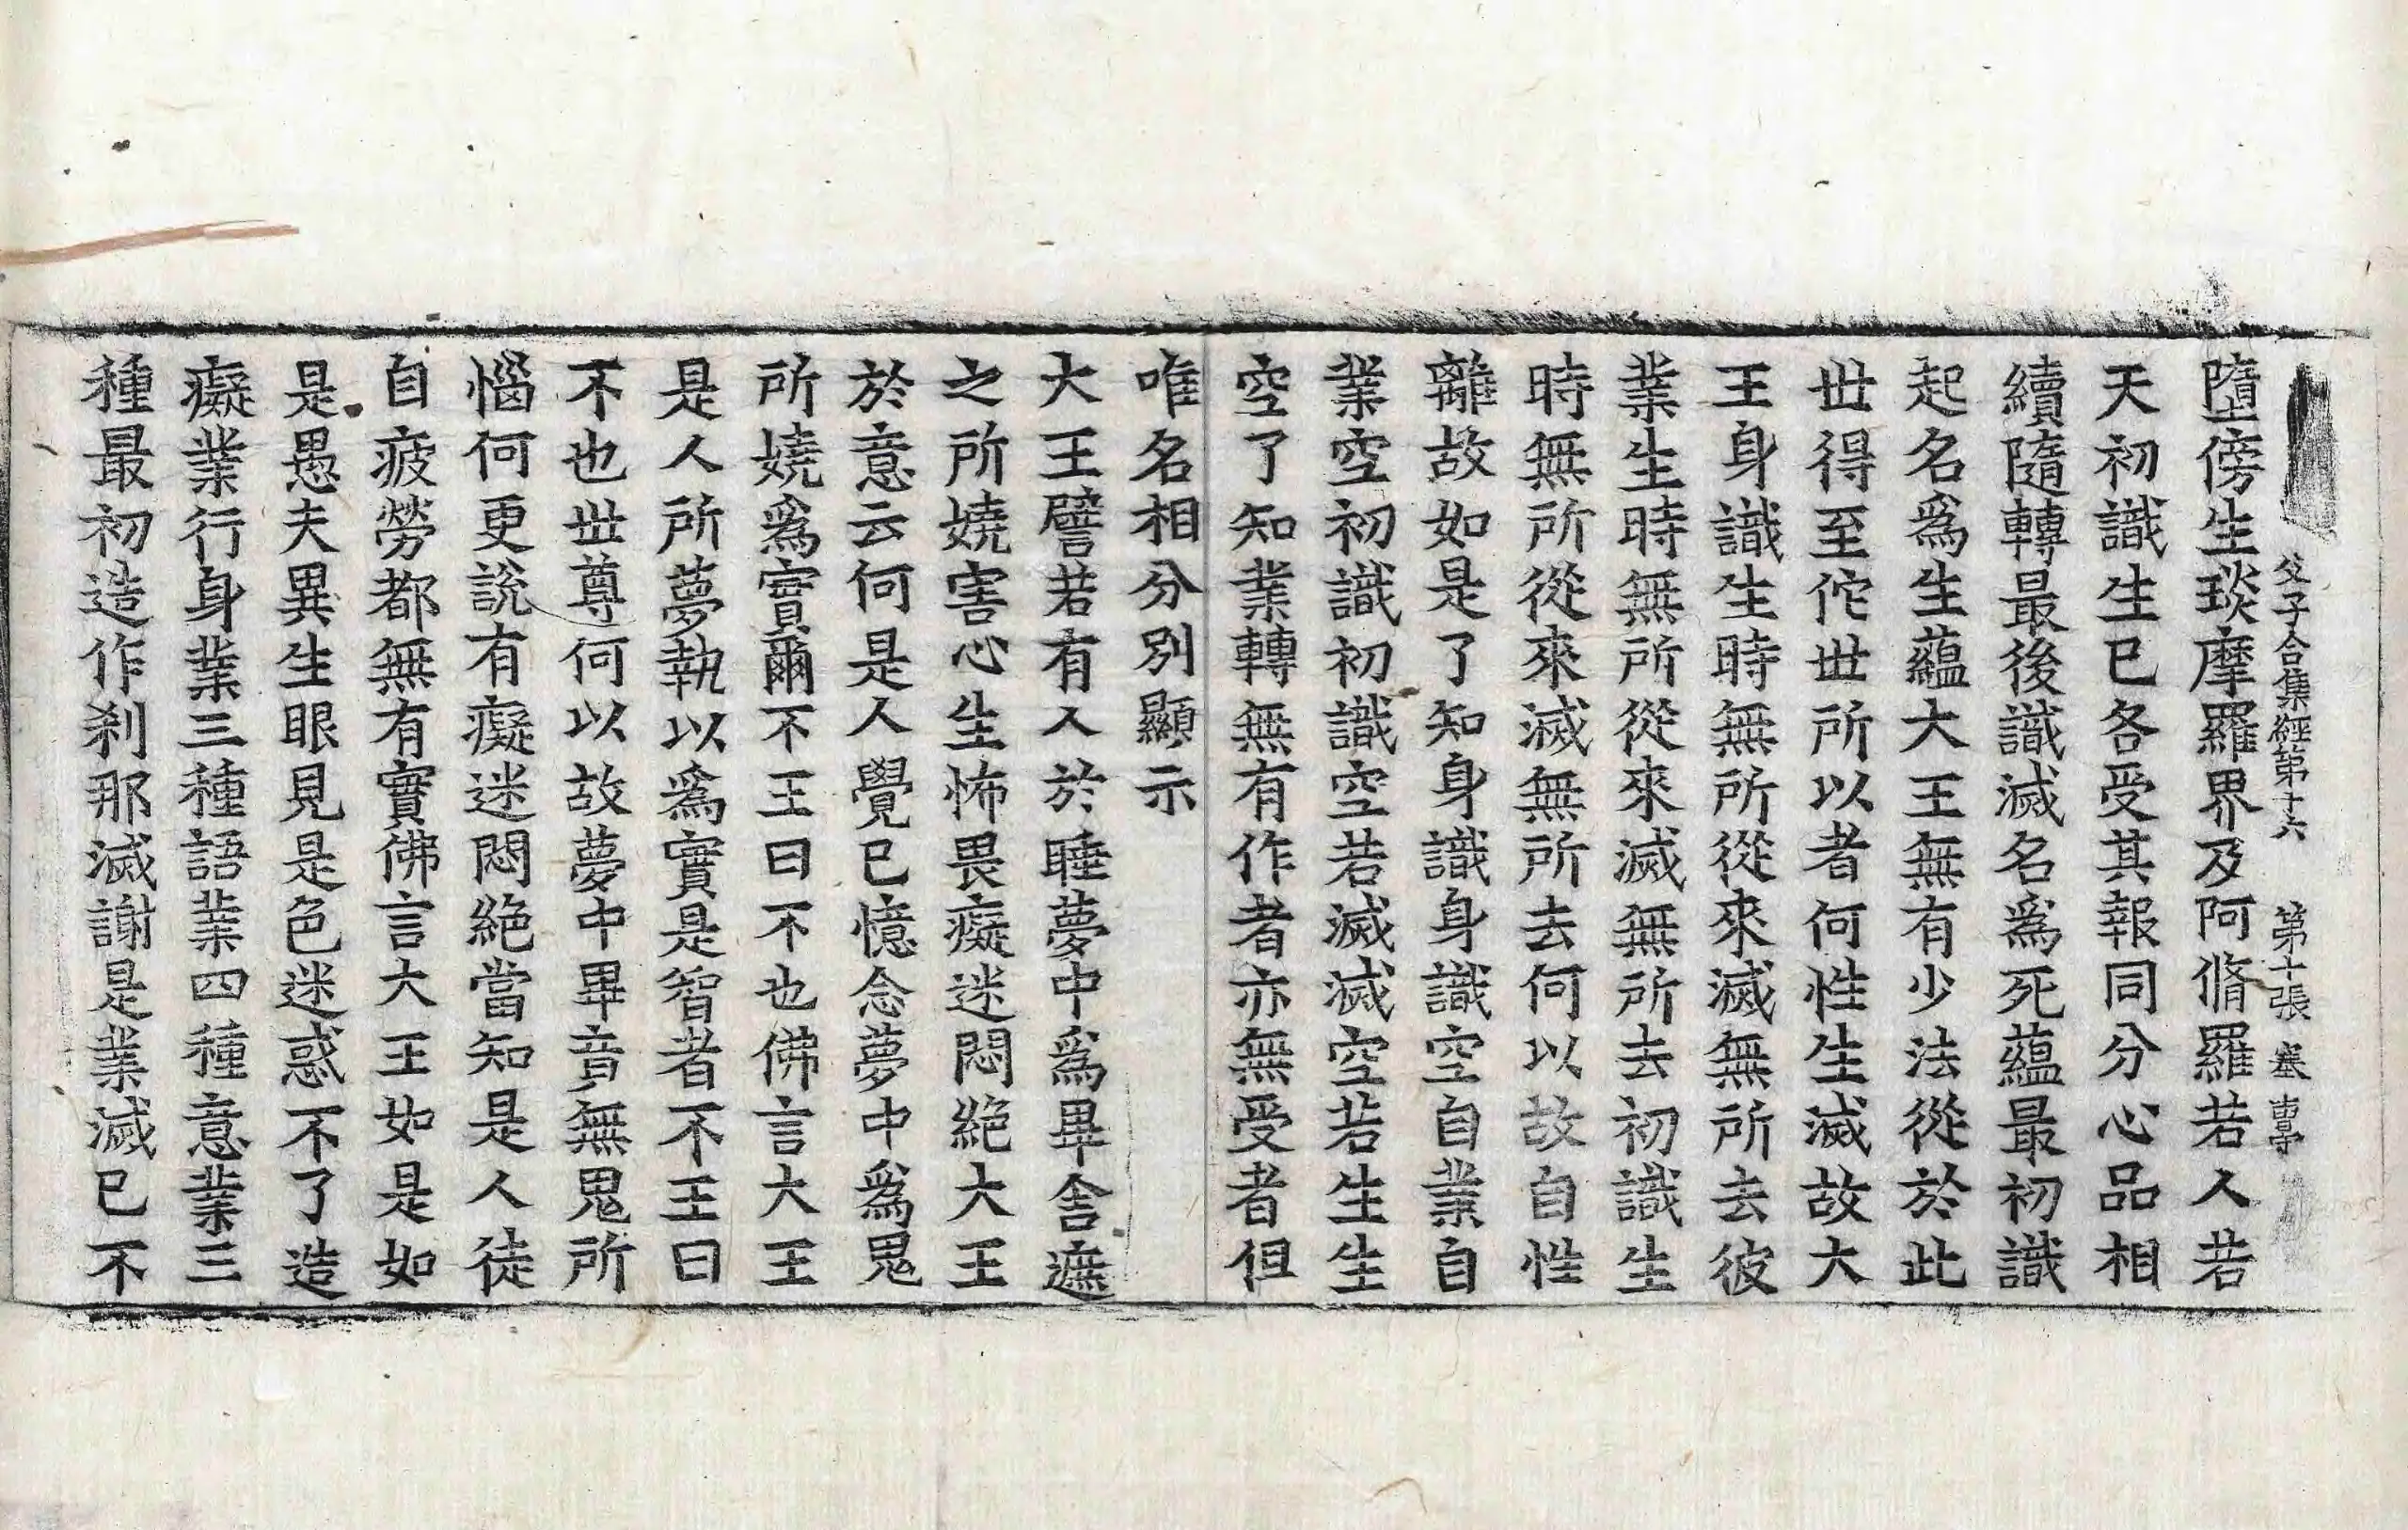 父子合集經第十六 第十張 塞
墮傍生琰摩羅界及阿脩羅若人若
天初識生已各受其報同分心品相
續隨轉最後識滅名爲死蘊最初識
起名爲生蘊大王無有少法從於此
世得至佗世所以者何性生滅故大
王身識生時無所從來滅無所去彼
業生時無所從來滅無所去初識生
時無所從來滅無所去何以故自性
離故如是了知身識身識空自業自
業空初識初識空若滅滅空若生生
空了知業轉無有作者亦無受者但
唯名相分別顯示
大王譬若有人於睡夢中爲畢舍遮
之所嬈害心生怖畏癡迷悶絕大王
於意云何是人覺已憶念夢中爲鬼
所嬈爲實爾不王曰不也佛言大王
是人所夢執以爲實是智者不王曰
不也世尊何以故夢中畢竟無鬼所
惱何更說有癡迷悶絕當知是人徒
自疲勞都無有實佛言大王如是如
是愚夫異生眼見是色迷惑不了造
癡業行身業三種語業四種意業三
種最初造作刹那滅謝是業滅已不